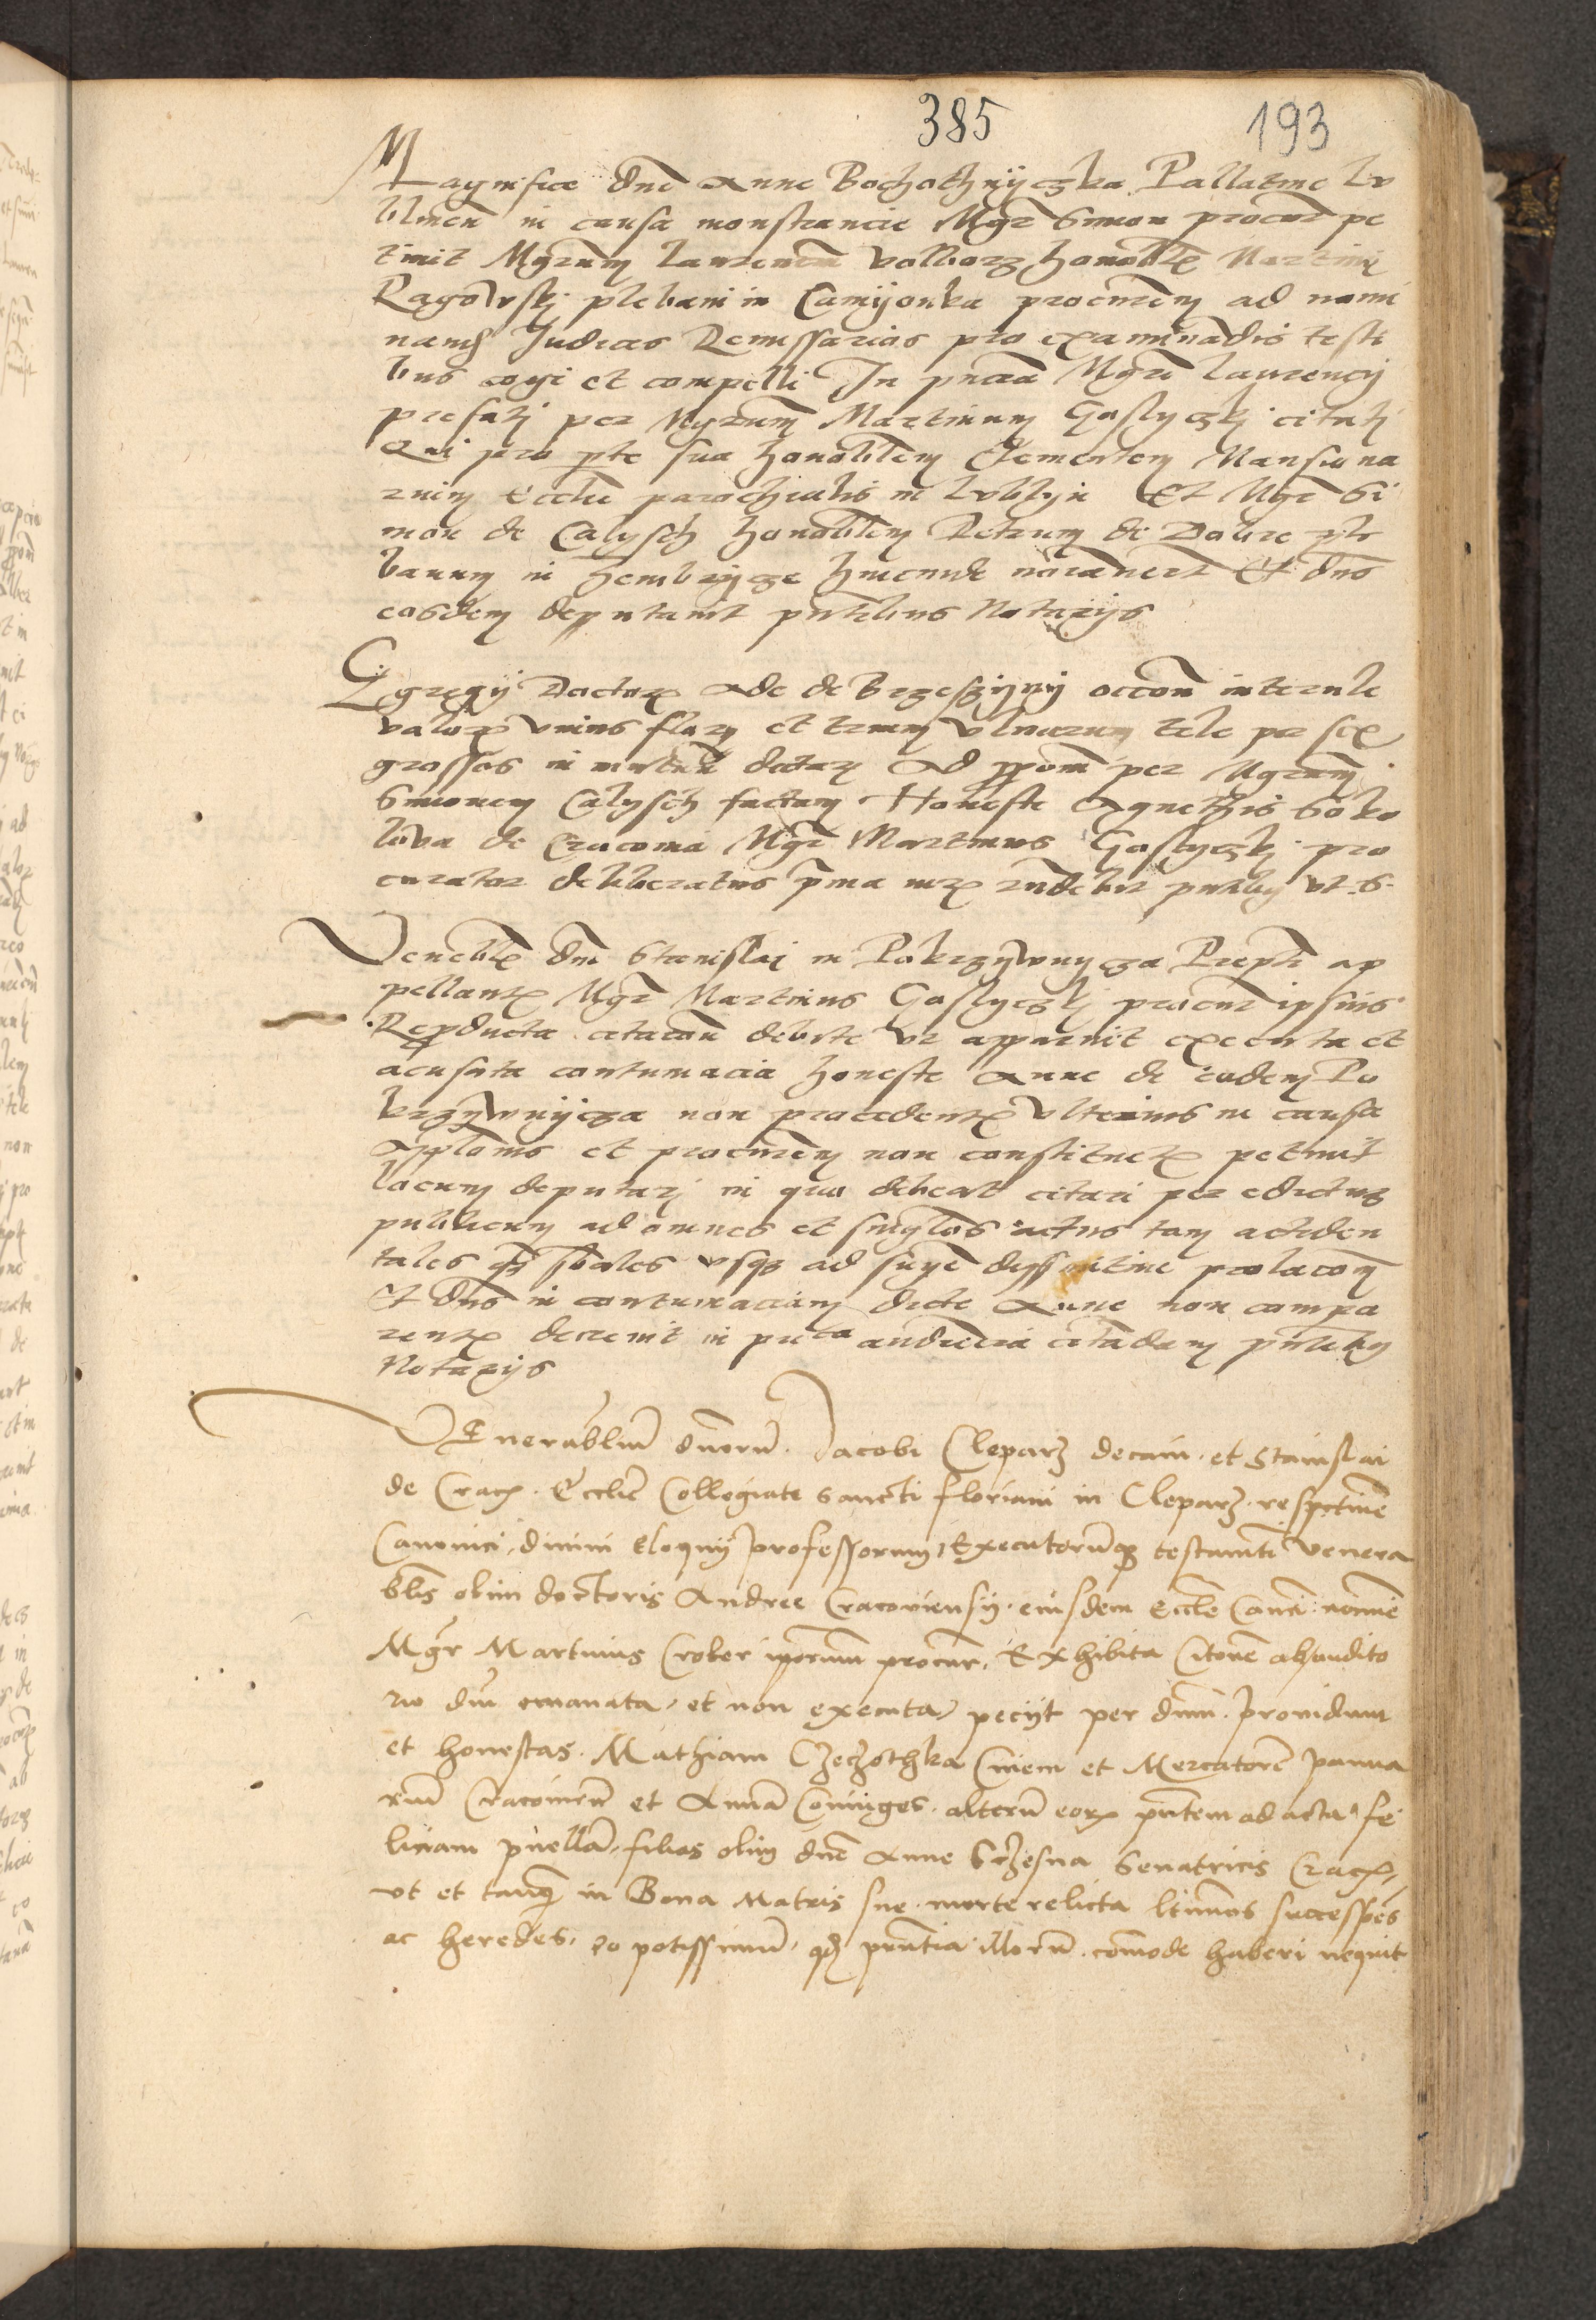 385 193
Magnifice dne Anne Bochothnyczka Pallatine Lu
blinen in causa monstrancie Mgr Simon procur pe
tiuit Mgrum Laurencium Volborz honoblis Martini
Ragowskj plebani in Camyonka procurem ad nomi
nand Judices Remissarios pro examinadis testi
bus cogi et compelli In pncia Mgri Laurencij
prefatj per Mgrum Martinum Goslyczkj citatj
Qui pro pte sua honoblem Clementem Mansiona
rium Ecclie parochialis in Lublyn Et Mgr Si
mon de Calysch honoblem Petrum de Dobre ple
banum in hincinde noiaueru Et dns
eosdem deputauit pntibus Notarijs
Egregij Doctor Ade de Brzeszyny occone interule
valor vnius flor et trium vlnarum tele per sex
grossos in dator Ad pponem per Mgrum
Simonem Calysch factam Honeste Agnethis Soko
lowa de Cracouia Mgr Martinus Goslyczkj pro
curator deliberatus pma iur rndebit pntibus vt S.
Veneblis dni Stanislaj in Pokrzywnycza Prepti ap
pellantis Mgr Martinus Goslyczkj procur ipsius
Repducta citacone debite vt apparuit executa et
acusata contumacia honeste Anne de eadem Po
krzywnycza non procedentis vlterius in causa
applonis et procurem non constituen petiuit
locum deputarj in quo debeat citari per edictum
publicum ad omnes et singlos actus tam actiden
tales qm sbales vsque ad suntie diffinitiue prolacom
Et dns in contumaciam dicte Anne non compa
rentis decreuit in pnca audiecia citadam pntibus
Notarijs
Venerablium dnorum Jacobi Cleparz decani et Stanislai
de Crac. Ecclie Collegiate Sancti Floriani in Cleparz respctiue
Canonici diuini eloquij professorum Executorumque testamti venera
blis olim doctoris Andree Cracouiensis eiusdem Ecclie Canci nomie
Mgr Martinus Crober iporum procur. Exhibita Citone ab audito
rio dni emanata et non executa, pecijt per dnm prouidum
et honestas Mathiam Czeczothka Ciuem et Mercatore panna
rum Cracouien et Anna Coniuges alterum eor pntem ad acta fe
liciam puella, filias olim dne Anne Sczesna Senatricis Crac,
vt et tanq in Bona Matris sue morte relicta ltimos successores
ac heredes, eo potissimum qd pntia illorum comode haberi nequit